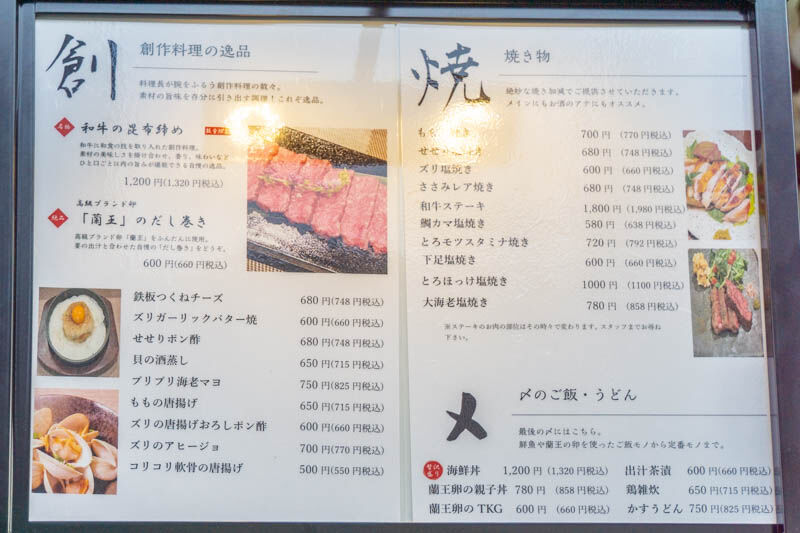 創
創作料理の逸品
料理長が腕をふるう創作料理の数々。
素材の旨味を存分に引き出す調理!これぞ逸品。
名物 和牛の昆布締め
和牛に和食の技を取り入れた創作料理。
素材の美味しさを掛け合わせ、香り、味わいなど
ひと口ごと以内の旨みが堪能できる自慢の逸品。
1,200円(1,320円税込)
高級ブランド卵
絶品 「蘭王」のだし巻き
高級ブランド卵「蘭王」をふんだんに使用。
姜の出汁と合わせた自慢の「だし巻き」をどうぞ。
600円(660円税込)
鉄板つくねチーズ 680円(748円税込)
ズリガーリックバター焼 600円(660円税込)
せせりポン酢 680円(748円税込)
貝の酒蒸し 650円(715円税込)
プリプリ海老マヨ 750円(825円税込)
ももの唐揚げ 650円(715円税込)
ズリの唐揚げおろしポン酢 600円(660円税込)
ズリのアヒージョ 700円(770円税込)
コリコリ軟骨の唐揚げ 500円(550円税込)
焼
焼き物
絶妙な焼き加減でご提供させていただきます。
メインにもお酒のアテにもオススメ。
700円 (770円税込)
680円 (748円税込)
ズリ塩焼き 600円 (660円税込)
ささみレア焼き 680円 (748円税込)
和牛ステーキ 1,800円 (1,980円税込)
鯛カマ塩焼き 580円 (638円税込)
とろモツスタミナ焼き 720円 (792円税込)
下足塩焼き 600円 (660円税込)
とろほっけ塩焼き 1000円 (1100円税込)
大海老塩焼き 780円 (858円税込)
※ステーキのお肉の部位はその時々で変わります。スタッフまでお尋ね
下さい。
〆
〆のご飯・うどん
最後の〆にはこちら。
鮮魚や蘭王の卵を使ったご飯モノから定番モノまで。
贅沢盛り 海鮮丼 1,200円 (1,320円税込)
蘭王卵の親子丼 780円 (858円税込)
蘭王卵のTKG 600円 (660円税込)
出汁茶漬 600円(660円税込)
鶏雑炊 650円(715円税込)
かすうどん 750円(825円税込)